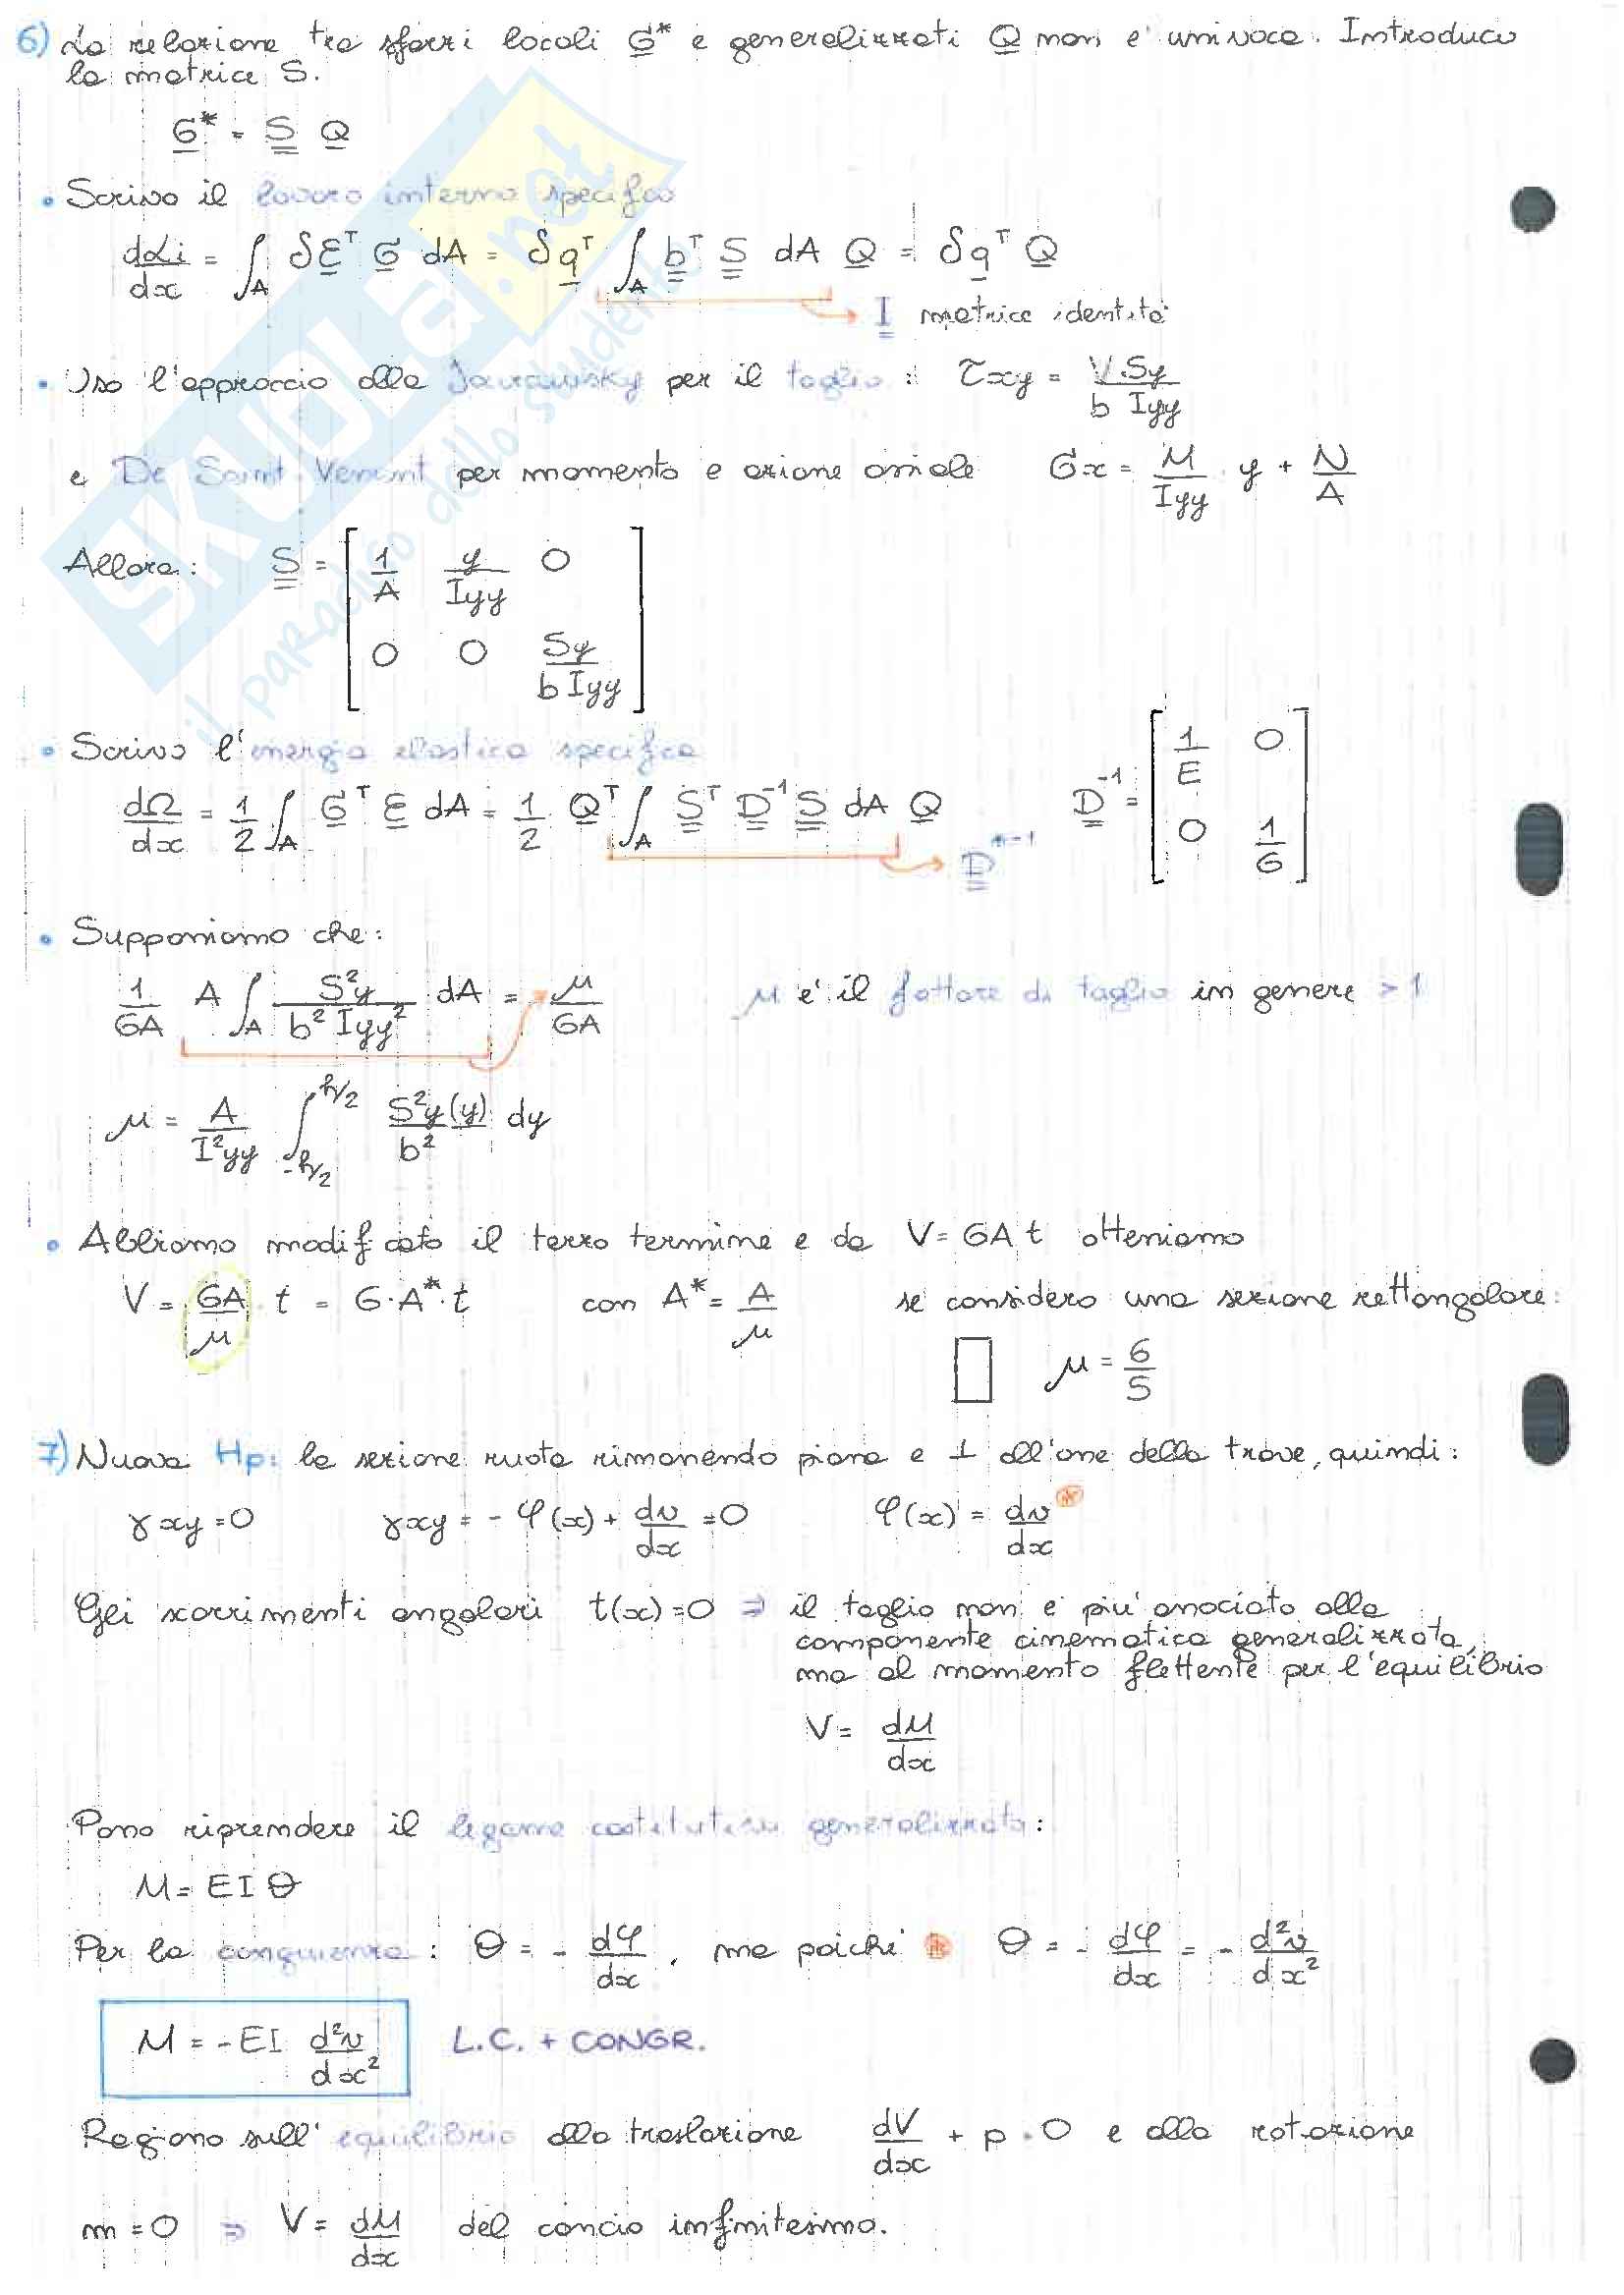 6) La relazione tra sforzi locali σ* e generalizzati Q non e' univoca. Introduco
la matrice S.
σ* = S Q
• Scrivo il lavoro interno specifico
dLi/dx = ∫_A δε^T σ dA = δq^T ∫_A b^T S dA Q = δq^T Q
→ I matrice identità
• Uso l'approccio alla Jourawsky per il taglio : τxy = V·Sy / b Iyy
e De Saint Venant per momento e azione assiale σx = M/Iyy · y + N/A
Allora: S = [ 1/A y/Iyy 0
0 0 Sy/b Iyy ]
• Scrivo l'energia elastica specifica
dΩ/dx = 1/2 ∫_A σ^T ε dA = 1/2 Q^T ∫_A S^T D^-1 S dA Q D^-1 = [ 1/E 0
0 1/G ]
→ D*^-1
• Supponiamo che:
1/GA A ∫_A S²y / b² Iyy² dA = μ/GA μ e' il fattore di taglio in genere > 1
μ = A/I²yy ∫_-h/2^h/2 S²y(y)/b² dy
• Abbiamo modificato il terzo termine e da V = GA t otteniamo
V = GA/μ · t = G·A*·t con A* = A/μ se considero una sezione rettangolare:
μ = 6/5
7) Nuova Hp: la sezione ruota rimanendo piana e ⊥ all'asse della trave, quindi:
γxy = 0 γxy = - φ(x) + dv/dx = 0 φ(x) = dv/dx *
Gli scorrimenti angolari t(x) = 0 ⇒ il taglio non e' piu' associato alla
componente cinematica generalizzata,
ma al momento flettente per l'equilibrio
V = dM/dx
Posso riprendere il legame costitutivo generalizzato:
M = EI θ
Per la congruenza : θ = - dφ/dx , ma poichè * θ = - dφ/dx = - d²v/dx²
M = - EI d²v/dx² L.C. + CONGR.
Ragiono sull' equilibrio alla traslazione dV/dx + p = 0 e alla rotazione
m = 0 ⇒ V = dM/dx del concio infinitesimo.
SKUOLA.net
il paradiso dello studente